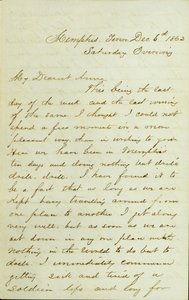 Memphis, Tenn Dec 6th 1862
Saturday Evening
My Dearest Anna,
This being the last
day of the week and the last evening
of the same I thought I could not
spend a few moments in a more
pleasant way than in writing to you
we have been in Memphis
ten days and doing nothing but drill
drill drill. I have found it to
be a fact that as long as we are
kept busy travelling around from
one place to another I get along
very well but as soon as we are
set down in any one place with
nothing in the world to do but to
drill I immediately commence
getting sick and tired of a
Soldiers life and long for